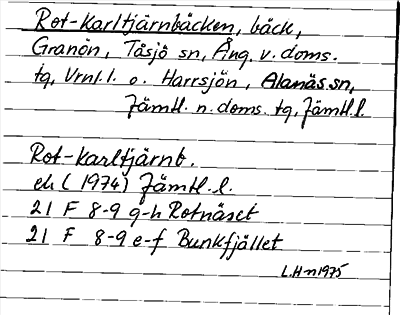 Rot-Karltjärnbäcken, bäck,
Granön, Tåsjö sn, Ång. v. doms.
tg, Vrnl. l. o. Harrsjön, Alanäs sn,
Jämtl. n. doms. tg, Jämtl. l.
Rot-Karltjärnb.
ek (1974) Jämtl. l.
21 F 8-9 g-h Rotnäset
21 F 8-9 e-f Bunkfjället
L.H-n 1975